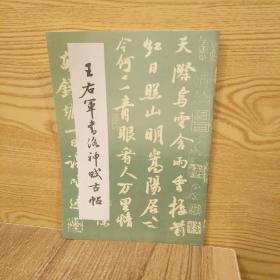 王右軍書洛神賦古帖
天際烏雲含雨重樓前
紅日照山明嵩陽居士
今何在青眼看人萬里情
在錢塘一日